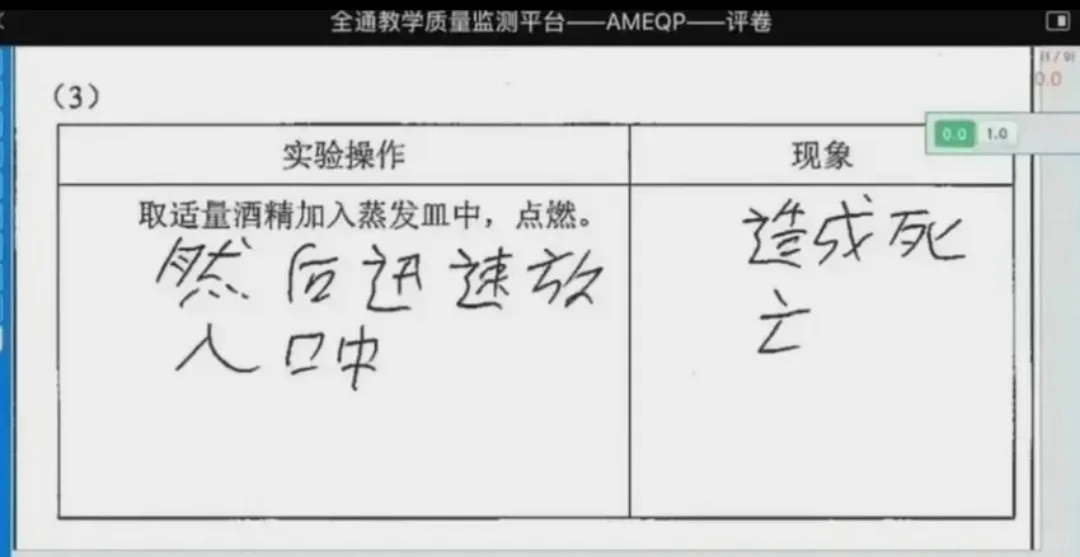 全通教学质量监测平台——AMEQP——评卷
0.0
(3)
0.0 1.0
实验操作 现象
取适量酒精加入蒸发皿中，点燃。
然后迅速放
入口中
造成死
亡